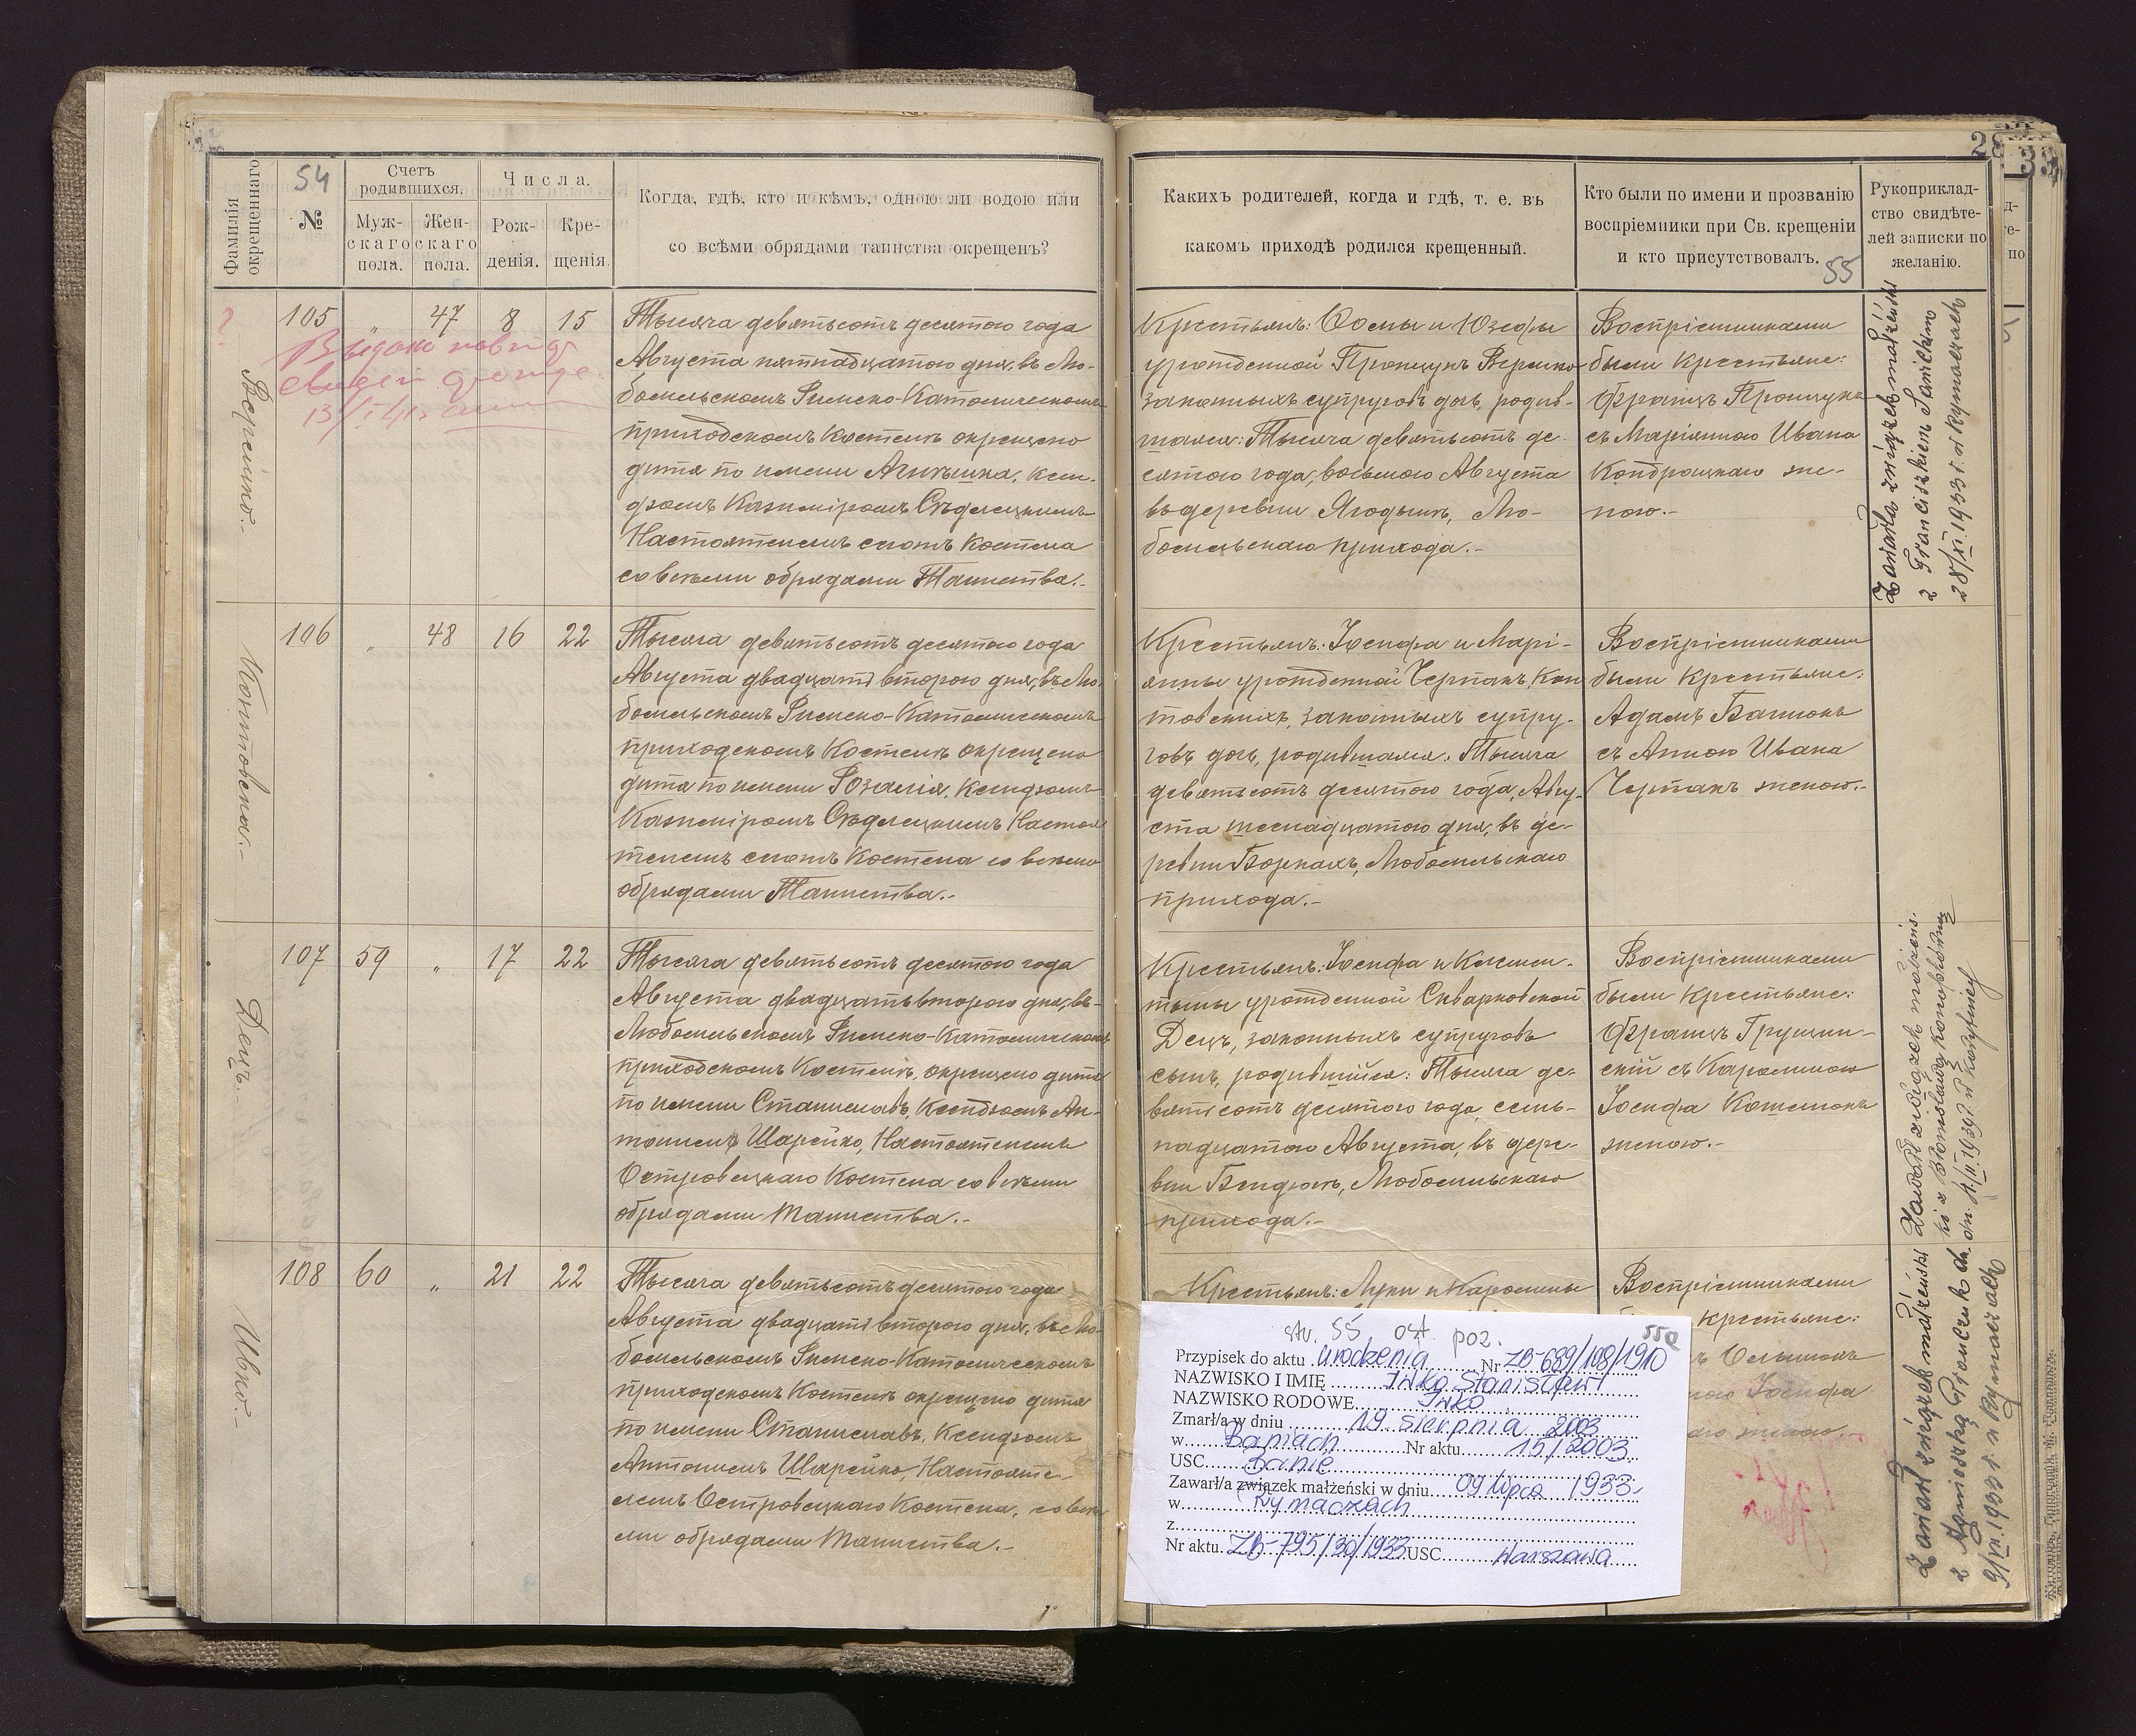 Фамилія окрещеннаго
54
№
Счетъ родившихся.
Муж-скаго пола.
Жен-скаго пола.
Числа.
Рож-денія.
Кре-щенія.
Когда, гдѣ, кто и кѣмъ, одною ли водою или
со всѣми обрядами таинства окрещенъ?
105 „ 47 8 15
Тысяча девятьсотъ десятого года
Августа пятнадцатого дня, въ Лю-
бомльскомъ Римско-Католическомъ
приходскомъ Костелѣ окрещено
дитя по имени Агнѣшка, Ксен-
дзомъ Казиміромъ Сѣдлецкимъ
Настоятелемъ сногъ Костела
со всѣми обрядами Таинства.-
106 „ 48 16 22
Тысяча девятьсотъ десятого года
Августа двадцать второго дня, въ Лю-
бомльскомъ Римско-Католическомъ
приходскомъ Костелѣ окрещено
дитя по имени Розалія, Ксендзомъ
Казиміромъ Сѣдлецкимъ Настоя-
телемъ Костела со всѣми
обрядами Таинства.-
Децъ.-
107 59 „ 17 22
Тысяча девятьсотъ десятого года
Августа двадцать второго дня, въ
Любомльскомъ Римско-Католическомъ
приходскомъ Костелѣ, окрещено дитя
по имени Станиславъ, Ксендзомъ Ан-
тониемъ Шарейко, Настоятелемъ
Островецкаго Костела со всѣми
обрядами таинства.-
Ивко.-
108 60 „ 21 22
Тысяча девятьсотъ десятого года
Августа двадцать второго дня, въ Лю-
бомльскомъ Римско-Католическомъ
приходскомъ Костелѣ окрещено дитя
по имени Станиславъ, Ксендзомъ
Антониемъ Шарейко, Настояте-
лемъ Островецкаго Костела, со всѣ-
ми обрядами таинства.-
28
Какихъ родителей, когда и гдѣ, т. е. въ
какомъ приходѣ родился крещенный.
Кто были по имени и прозванію
воспріемники при Св. крещеніи
и кто присутствовалъ.
55
Рукоприклад-
ство свидѣте-
лей записки по
желанію.
Крестьянъ: Осипа и Юзефы
урожденной Пронцукъ
законныхъ супруговъ дочь, родив-
шаяся: Тысяча девятьсотъ де-
сятого года, восьмого Августа
въ деревни Ягодынъ, Лю-
бомльскаго прихода.-
Воспріемниками
были Крестьяне:
Францъ Пронцукъ
съ Маріянною Ивана
Кондрацкаго же-
ною.-
Zawarła związek małżeński
z Franciszkiem
28/XI.1933 r. w Rymaczach
Крестьянъ: Іосифа и Марі-
янны урожденной Черпакъ, Кон-
товскихъ, законныхъ супру-
говъ дочь, родившаяся: Тысяча
девятьсотъ десятого года, Авгу-
ста шеснадцатого дня, въ де-
ревни Боркахъ, Любомльскаго
прихода.-
Воспріемниками
были Крестьяне:
Адамъ
съ Анною Ивана
Черпакъ женою.-
Крестьянъ: Іосифа и Клемен-
тыны урожденной Скварковской
Децъ, законныхъ супруговъ
сынъ, родившійся: Тысяча де-
вятьсотъ десятого года, семь-
надцатого Августа, въ дере-
вни Бендюгъ, Любомльскаго
прихода.-
Воспріемниками
были Крестьяне:
Францъ Грущин-
скій съ Каролиною
Іосифа
женою.-
Крестьянъ: Луки и Каролины
Воспріемниками
Крестьяне:
Іосифа
женою.-
Zawarł związek małżeński
z Agnieszką
9/VII.1933 r. w Rymaczach
str. 55 ost. poz. 55a
Przypisek do aktu urodzenia Nr ZB-689/108/1910
NAZWISKO I IMIĘ Iwko Stanisław
NAZWISKO RODOWE Iwko
Zmarł/a w dniu 19 sierpnia 2003
w Baniach Nr aktu 15/2003
USC Banie
Zawarł/a związek małżeński w dniu 09 lipca 1933
w Rymaczach
z
Nr aktu ZB-795/30/1933 USC Warszawa